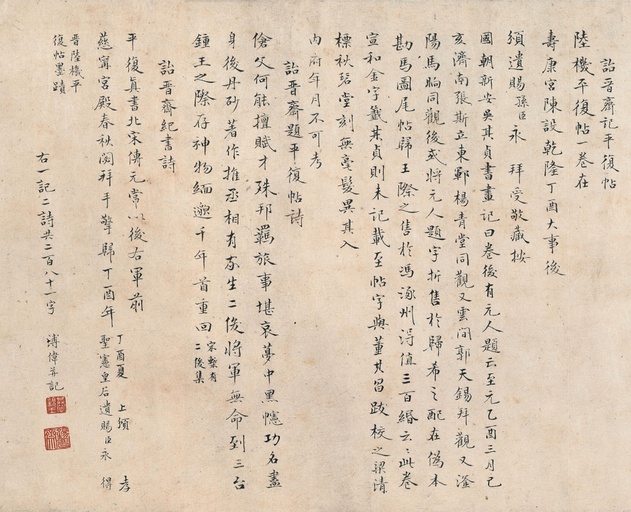 詒晉齋記平復帖
陸機平復帖一卷在
壽康宮陳設乾隆丁酉大事後
頒遺賜孫臣永 拜受敬藏按
國朝新安吳其貞書畫記曰卷後有元人題云至元乙酉三月己
亥濟南張斯立東鄆楊青堂同觀又雲間郭天錫拜觀又滏
陽馬昫同觀後或將元人題字折售於歸希之配在偽本
勘馬圖尾帖歸王際之售於馮涿州得值三百緡云云此卷
宣和金字籤其貞則未記載至帖字與董其昌跋校之梁清
標秋碧堂刻無毫髮異其入
內府年月不可考
詒晉齋題平復帖詩
傖父何能擅賦才 殊邦羈旅事堪哀 夢中黑幰功名盡
身後丹砂著作推 丞相有家生二俊 將軍無命到三台
鍾王之際存神物 緬邈千年首重回 宋槧有二俊集
詒晉齋紀書詩
平復真書北宋傳 元常以後右軍前
慈寧宮殿春秋閟 拜手擎歸丁酉年 丁酉夏 上頒 孝聖憲皇后遺賜臣永 得
晉陸機平
復帖墨蹟
右一記二詩共二百八十一字 溥偉并記